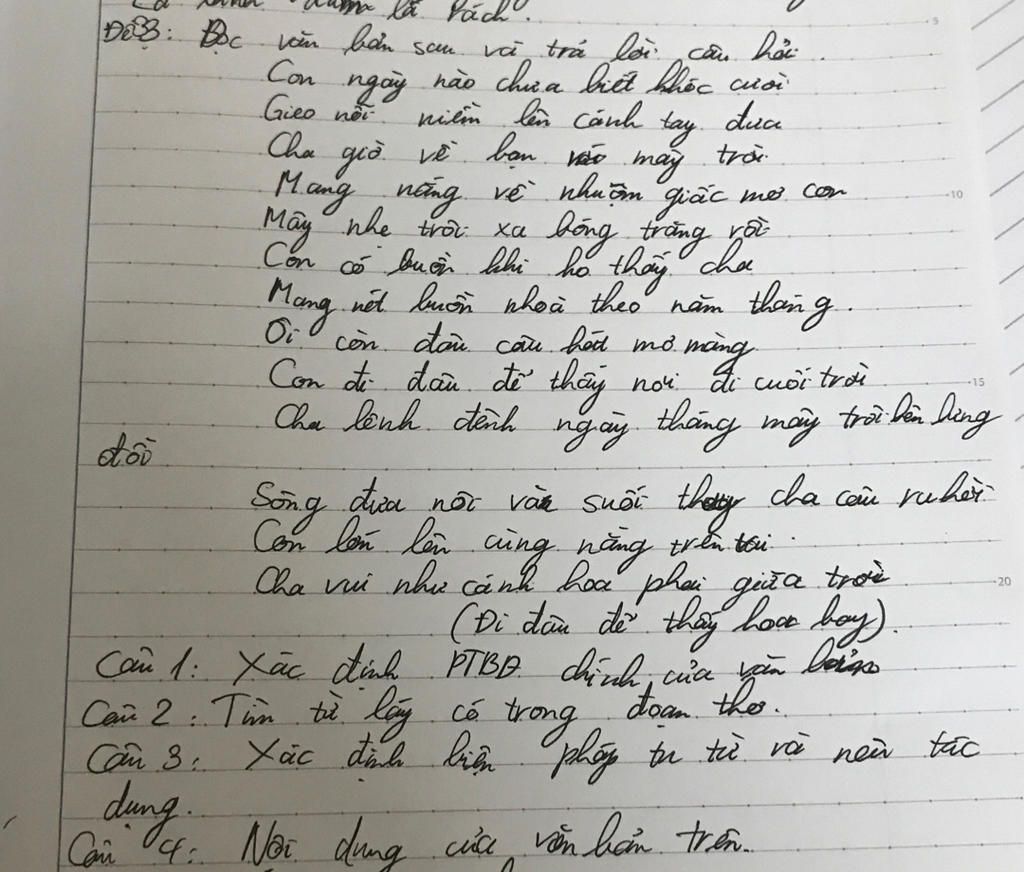 lá rách.
Đề 3: Đọc văn bản sau và trả lời câu hỏi
Con ngày nào chưa biết khóc cười
Gieo nỗi niềm lên cánh tay đưa
Cha giờ về bạn mây trời
Mang nắng về nhuộm giấc mơ con
Mây nhẹ trôi xa bóng trăng rồi
Con có buồn khi ko thấy cha
Mang nét buồn nhoà theo năm tháng.
Ôi còn đâu câu hát mơ màng
Con đi đâu để thấy nơi đi cuối trời
Cha lênh đênh ngày tháng mây trời bên lưng
đồi
Sông đưa nôi và suối thay cha câu ru hời
Con lớn lên cùng nắng trên
Cha vui như cánh hoa phai giữa trời
(Đi đâu để thấy hoa bay).
Câu 1: Xác định PTBĐ chính của văn bản
Câu 2: Tìm từ láy có trong đoạn thơ.
Câu 3: Xác định biện pháp tu từ và nêu tác
dụng.
Câu 4: Nội dung của văn bản trên.